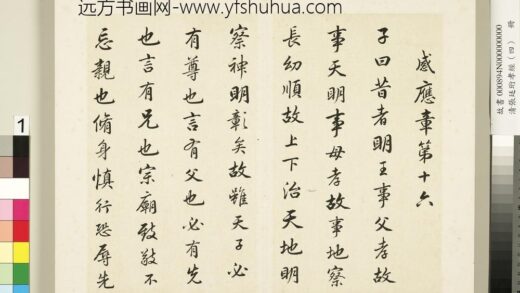 远方书画网-www.yfshuhua.com
感應章第十六
子曰昔者明王事父孝故
事天明事母孝故事地察
長幼順故上下治天地明
察神明彰矣故雖天子必
有尊也言有父也必有先
也言有兄也宗廟致敬不
忘親也脩身慎行恐辱先
故書 000894N000000000 冊
清張廷 孝經(四)
1